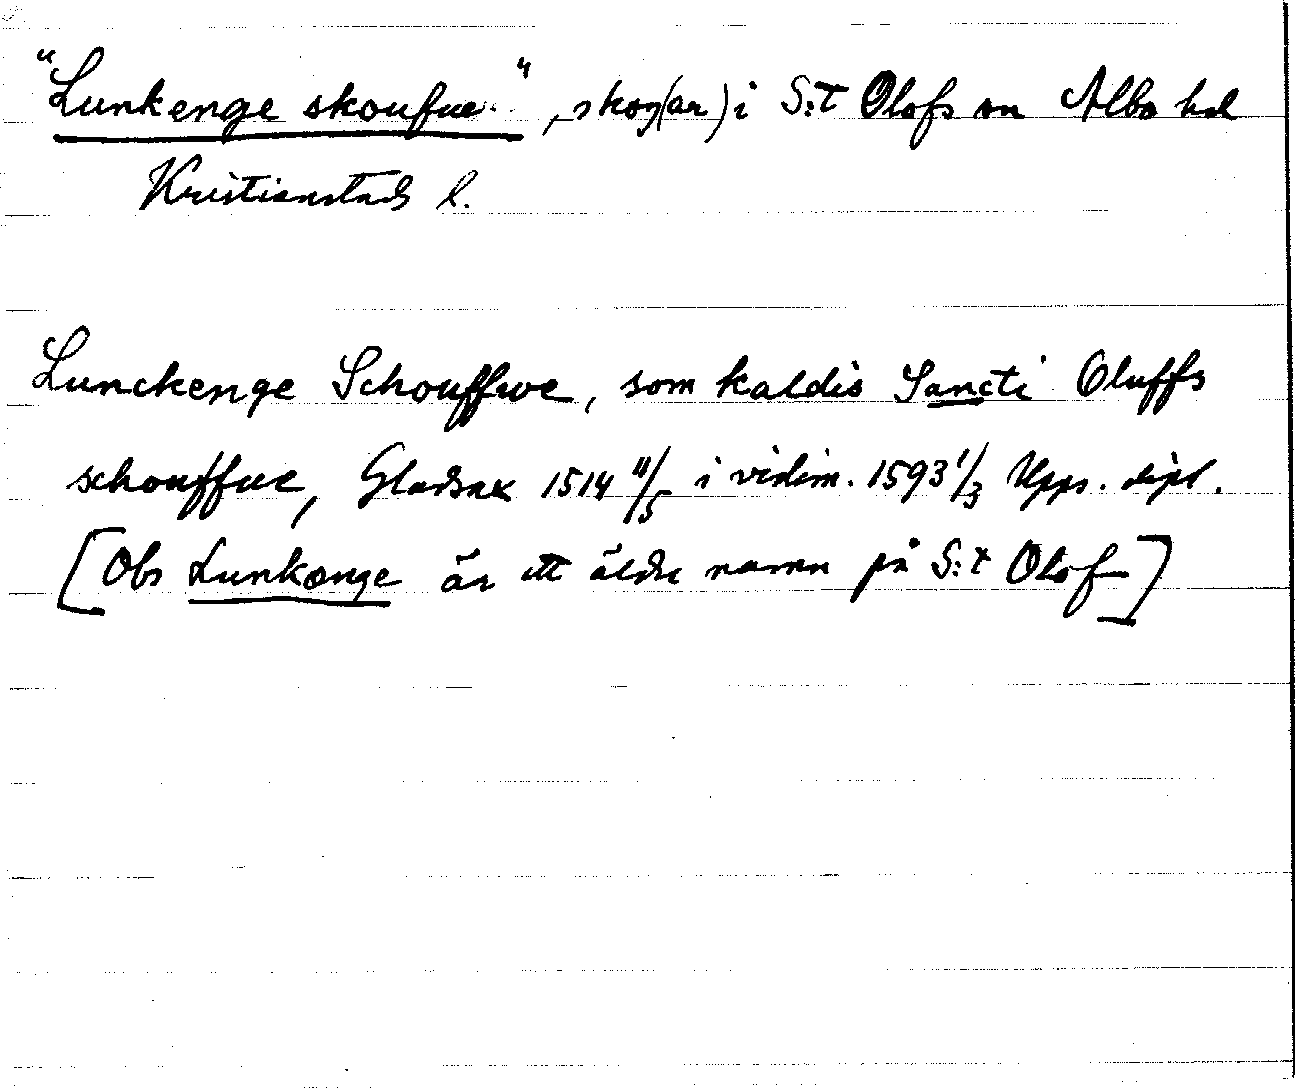 "Lunkenge skoufue", skog(ar) i S:t Olofs sn Albo hd
Kristianstads l.
Lunckenge Schouffwe, som kaldis Sancti Oluffs
schouffue, Gladsax 1514 11/5 i vidim. 1593 1/3 Upps. dipl.
[Obs Lunkænge är ett äldre namn på S:t Olof]